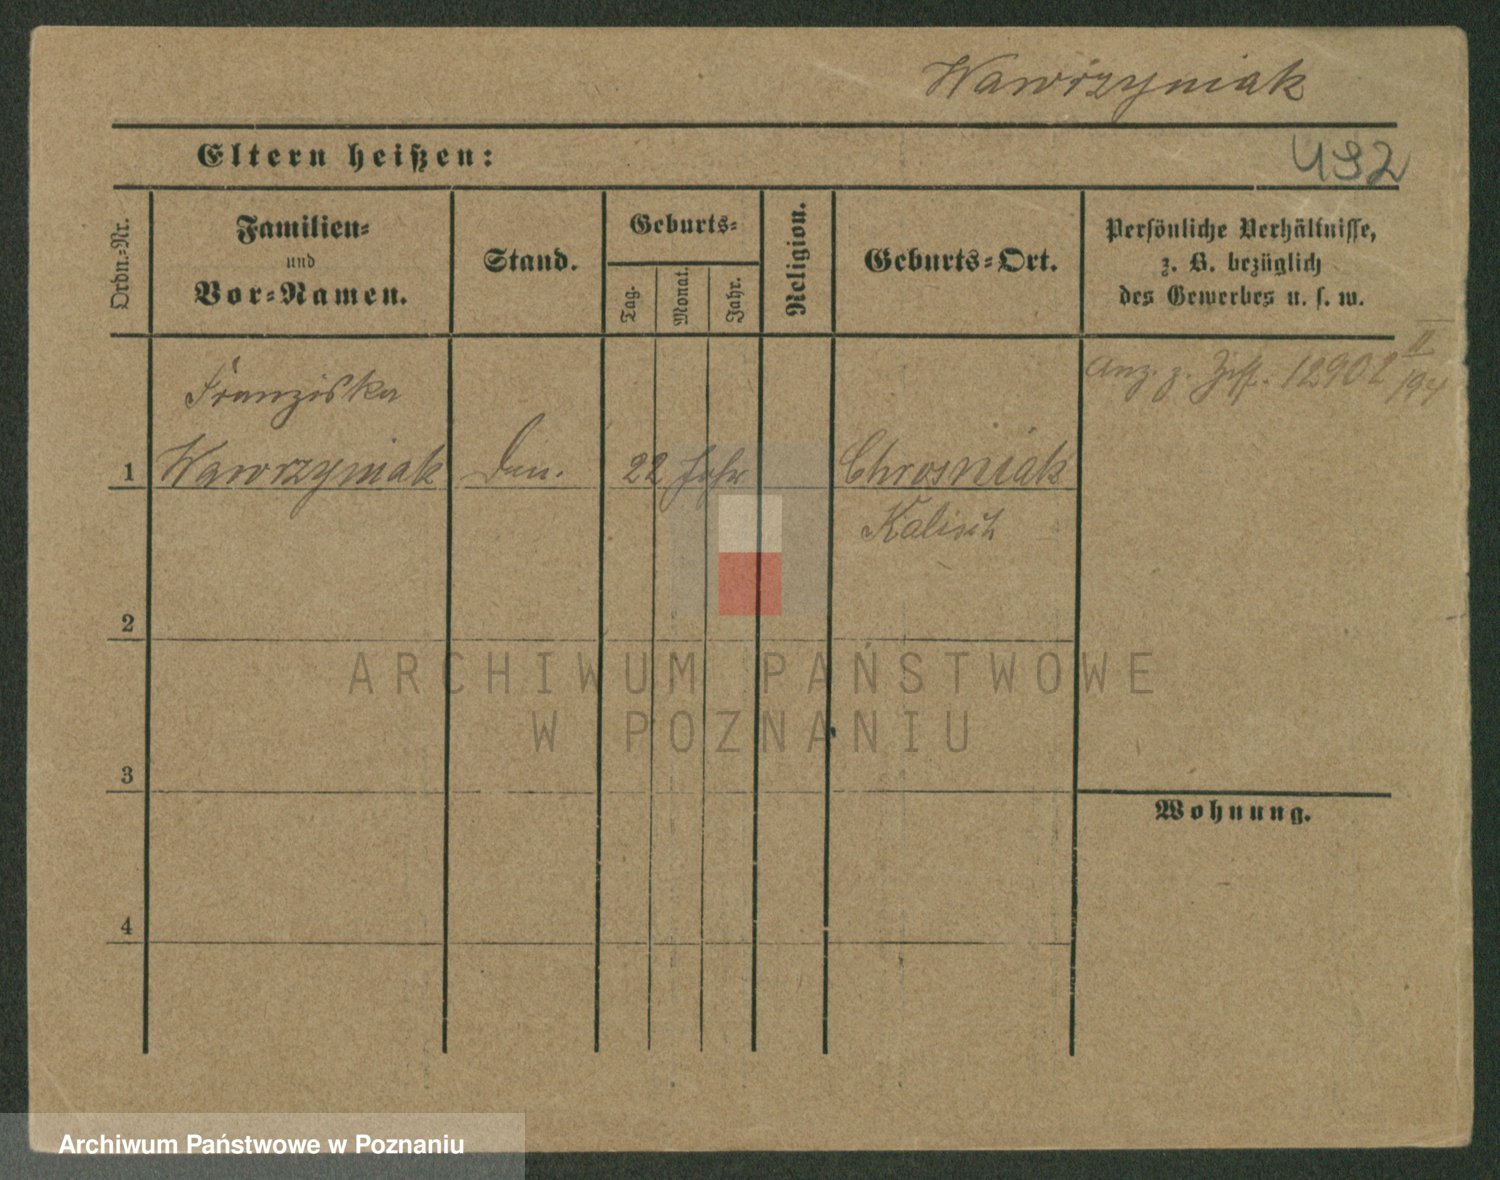 Wawrzyniak
Eltern heißen:
432
Ordn.-Nr.
Familien-
und
Vor-Namen.
Stand.
Geburts-
Tag.
Monat.
Jahr.
Religion.
Geburts-Ort.
Persönliche Verhältnisse,
z. B. bezüglich
des Gewerbes u. s. w.
Franziska
Anz. z. 12902 II
1 Wawrzyniak 22 Jahr Chrosniak
Kalisch
2
ARCHIWUM PAŃSTWOWE
W POZNANIU
3
Wohnung.
4
Archiwum Państwowe w Poznaniu